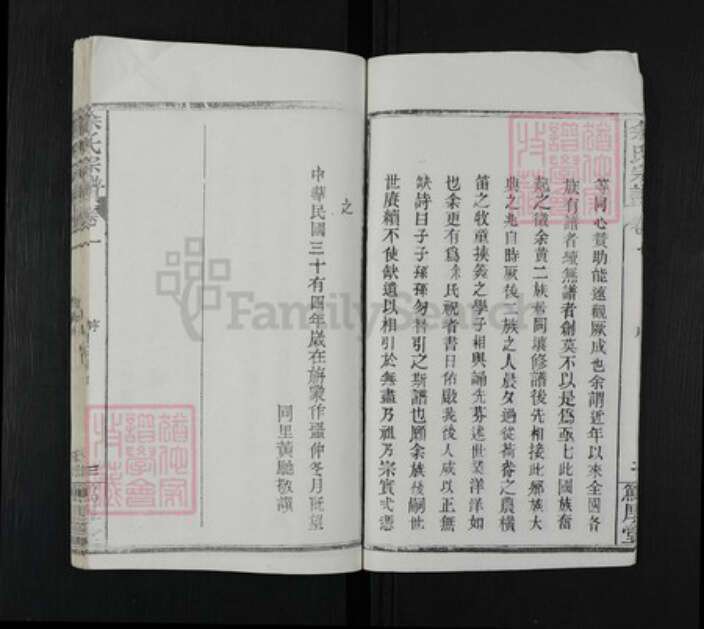 等同心贊助能速觀厥成也余謂近年以來全國各
族有譜者續無譜者創莫不以是爲亟亡此國族奮
起之徵余黃二族 同壤修譜後先相接此 族大
興之兆自時厥後二族之人晨夕過從荷 之農橫
笛之牧童挾 之學子相與誦先芬述世業洋洋如
也余更有爲 氏祝者書曰佑啟我後人咸以正無
缺詩曰子子孫孫勿替引之斯譜也願余族後嗣世
世賡續不使缺遺以相引於無盡乃祖乃宗實式憑
之
中華民國三十有四年歲在旃蒙作噩仲冬月既望
同里黃 敬譔
余氏宗譜 卷一
序
三
篤厚堂
FamilySearch